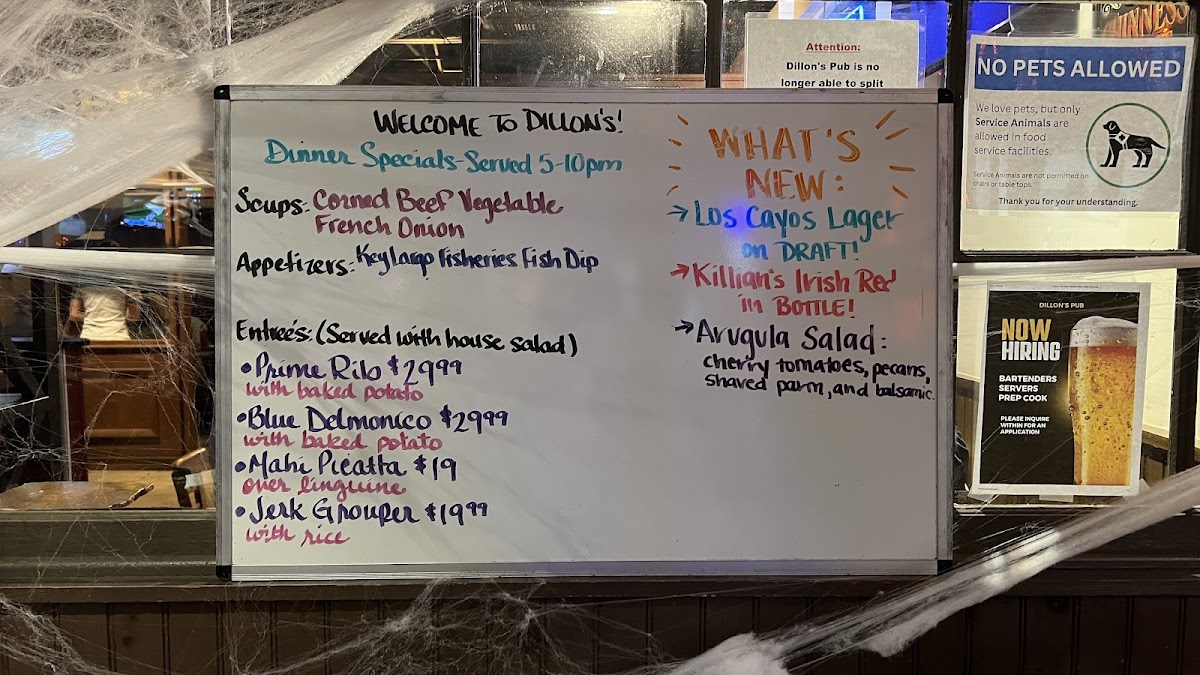 WELCOME TO DILLON'S!
Dinner Specials-Served 5-10pm
Soups: Corned Beef Vegetable
French Onion
Appetizers: Key Largo Fisheries Fish Dip
Entrée's: (Served with house salad)
•Prime Rib $29⁹⁹
with baked potato
•Blue Delmonico $29⁹⁹
with baked potato
•Mahi Picatta $19
over linguine
•Jerk Grouper $19⁹⁹
with rice
WHAT'S
NEW:
→Los Cayos Lager
on DRAFT!
→Killian's Irish Red
in BOTTLE!
→Arugula Salad:
cherry tomatoes, pecans,
shaved parm, and balsamic.
Attention:
Dillon's Pub is no
longer able to split
GUINNESS
NO PETS ALLOWED
We love pets, but only
Service Animals are
allowed in food
service facilities.
Service Animals are not permitted on
chairs or table tops.
Thank you for your understanding.
DILLON'S PUB
NOW
HIRING
BARTENDERS
SERVERS
PREP COOK
PLEASE INQUIRE
WITHIN FOR AN
APPLICATION